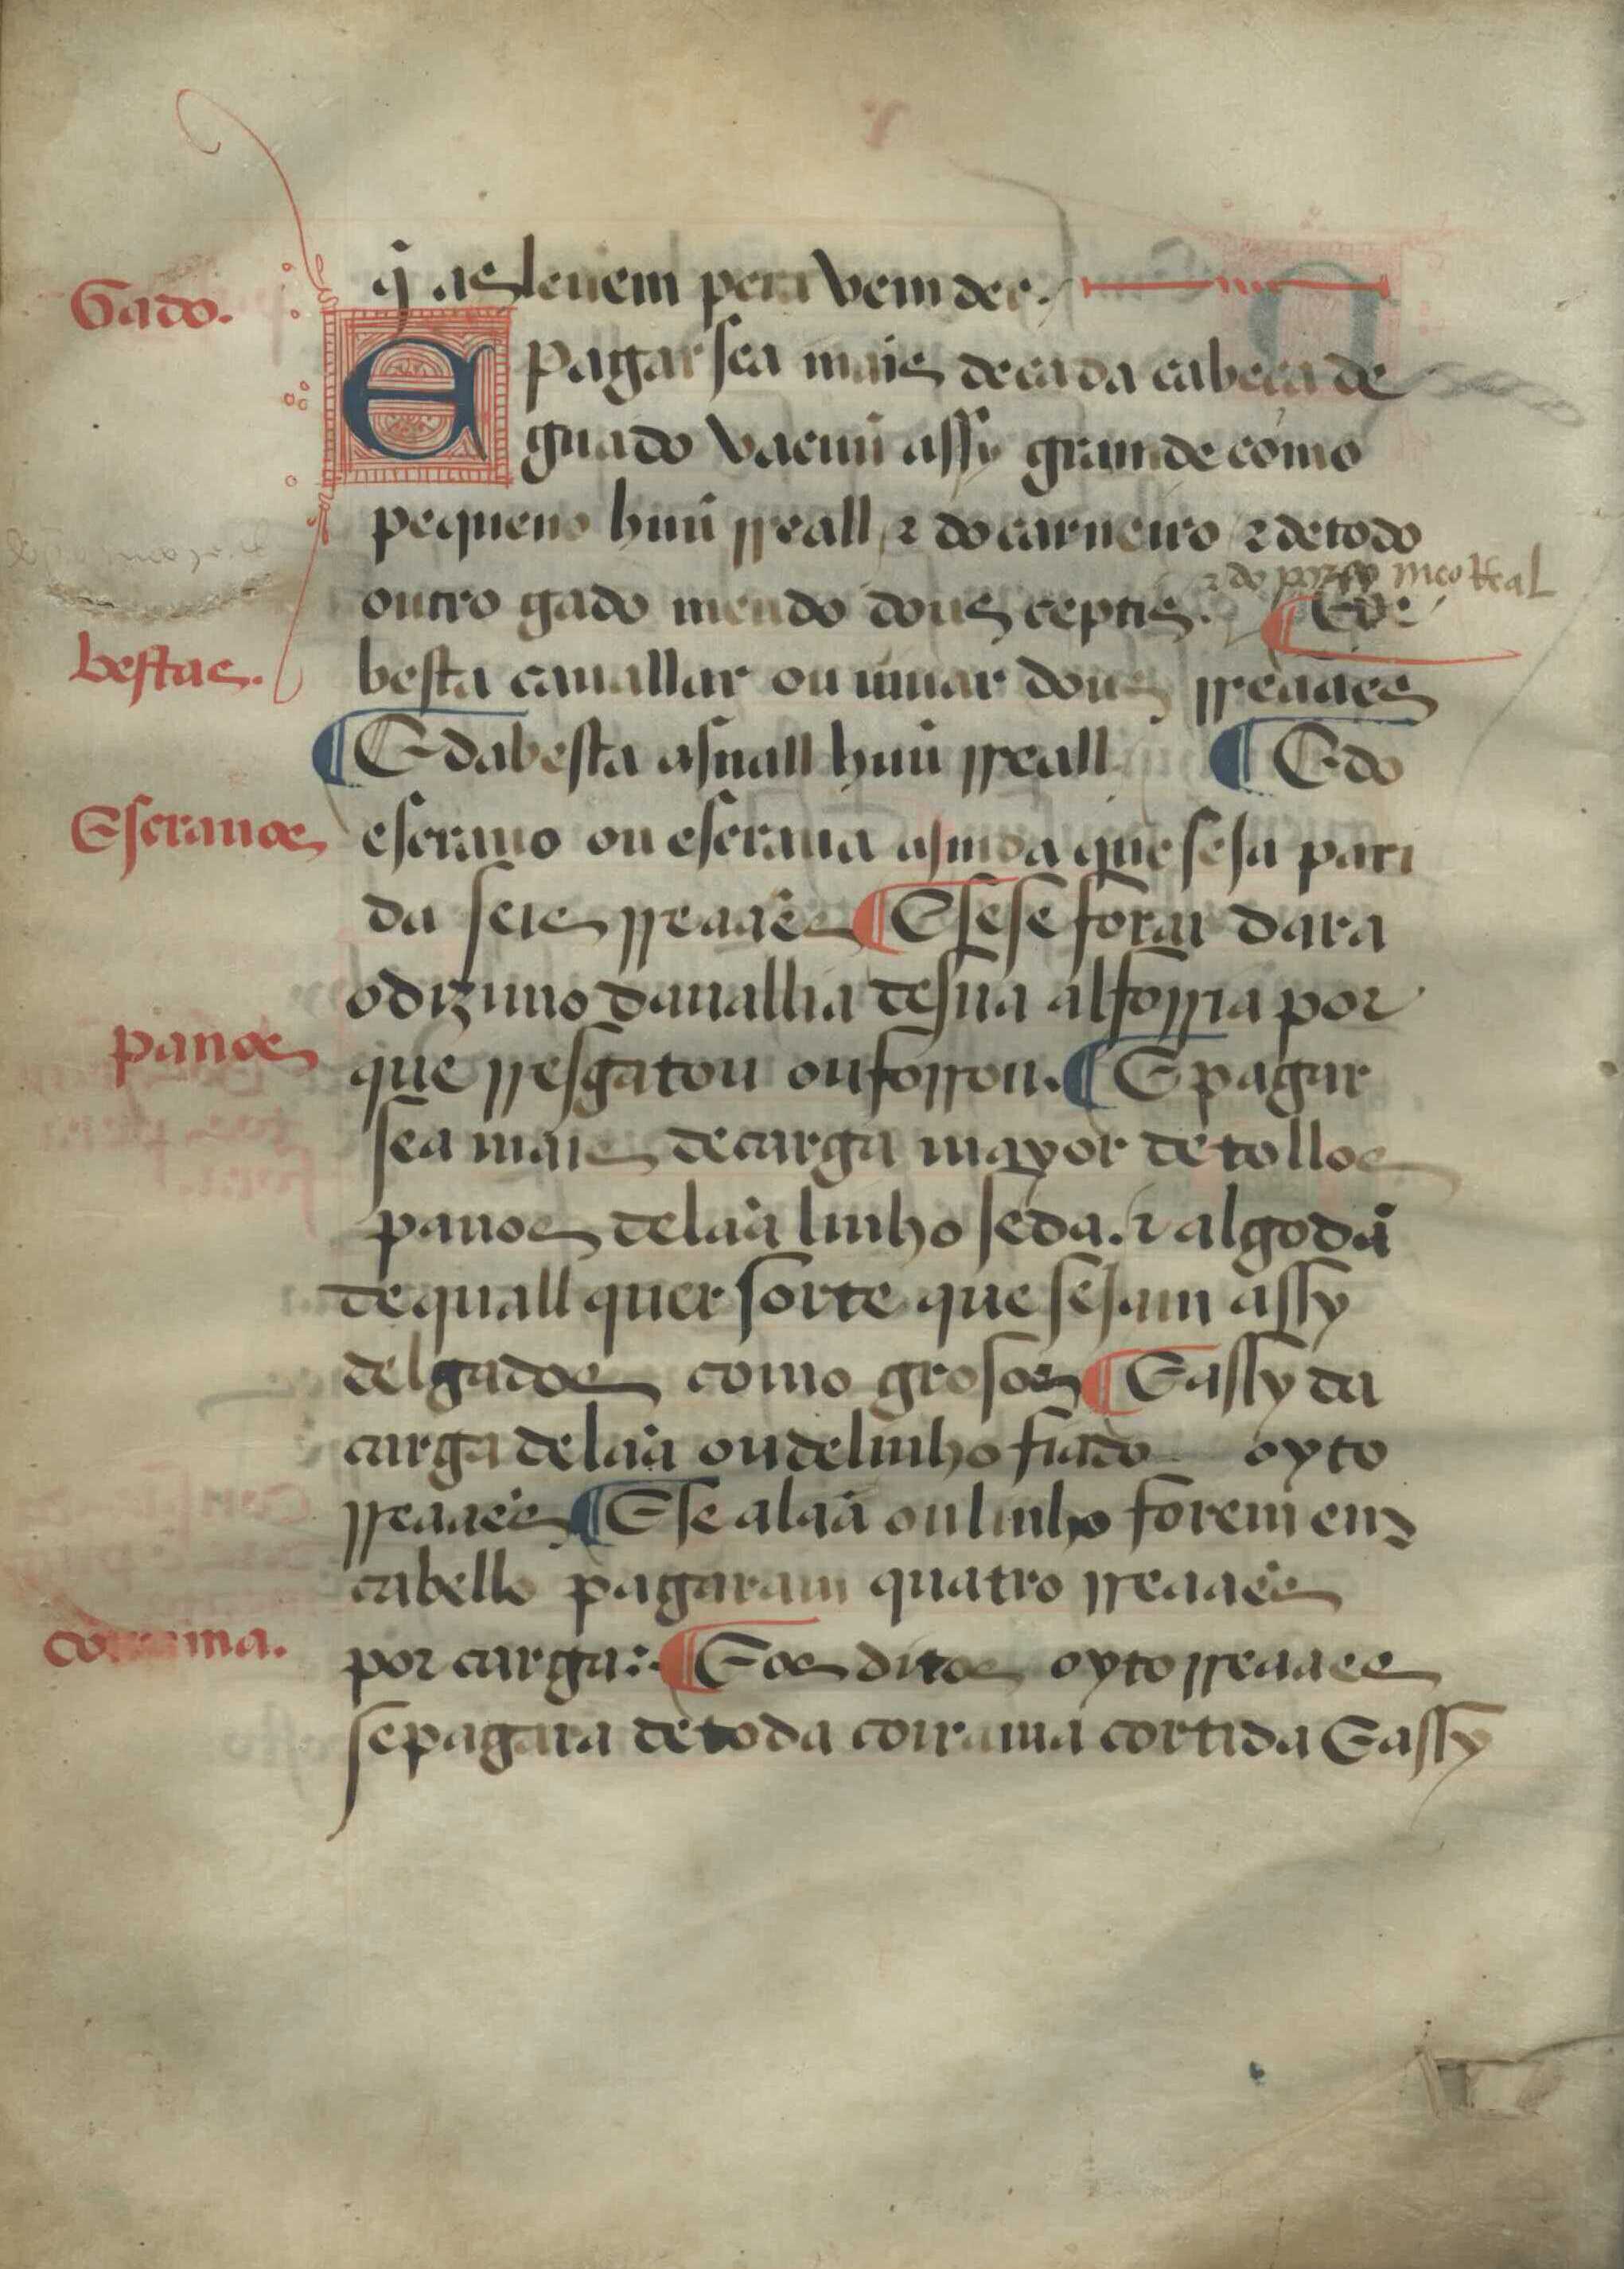 q̃ as leuem pera vemder.
Gado.
E pagarsea mais de cada cabeça de
guado vacuũ assy gramde como
pequeno huũ rreall, ⁊ do carneiro / ⁊ de todo
⁊ do porco meo Real
outro gado meudo dous ceptis. ¶ E de
bestas.
besta cauallar ou muar dous rreaaes
¶ E da besta asnall huũ rreall ¶ E do
Escrauos
escrauo ou escraua ajmda que seja pari
da seis rreaaẽs ¶ E se se forar dara
o dizimo da vallia de sua alforria por
panos
que rresgatou ou forrou. ¶ E pagar
sea mais de carga mayor de tollos
panos de laã linho seda. ⁊ algodã
de quall quer sorte que sejam assy
delgados como grosos ¶ E assy da
carga de laã ou de linho fiado oyto
rreaaẽs ¶ E se a laã ou linho forem em
cabello pagaram quatro rreaaẽs
coirama.
por carga: ¶ E os ditos oyto rreaaes
se pagara de toda coirama cortida E assy